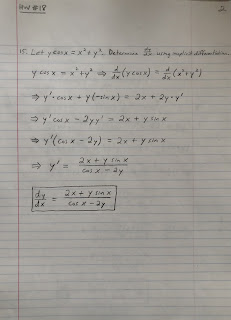 HW #18
2
15. Let y cos x = x² + y². Determine dy/dx using implicit differentiation.
y cos x = x² + y² ⇒ d/dx (y cos x) = d/dx (x² + y²)
⇒ y' · cos x + y(-sin x) = 2x + 2y · y'
⇒ y' cos x - 2y y' = 2x + y sin x
⇒ y' (cos x - 2y) = 2x + y sin x
⇒ y' = (2x + y sin x)/(cos x - 2y)
dy/dx = (2x + y sin x)/(cos x - 2y)